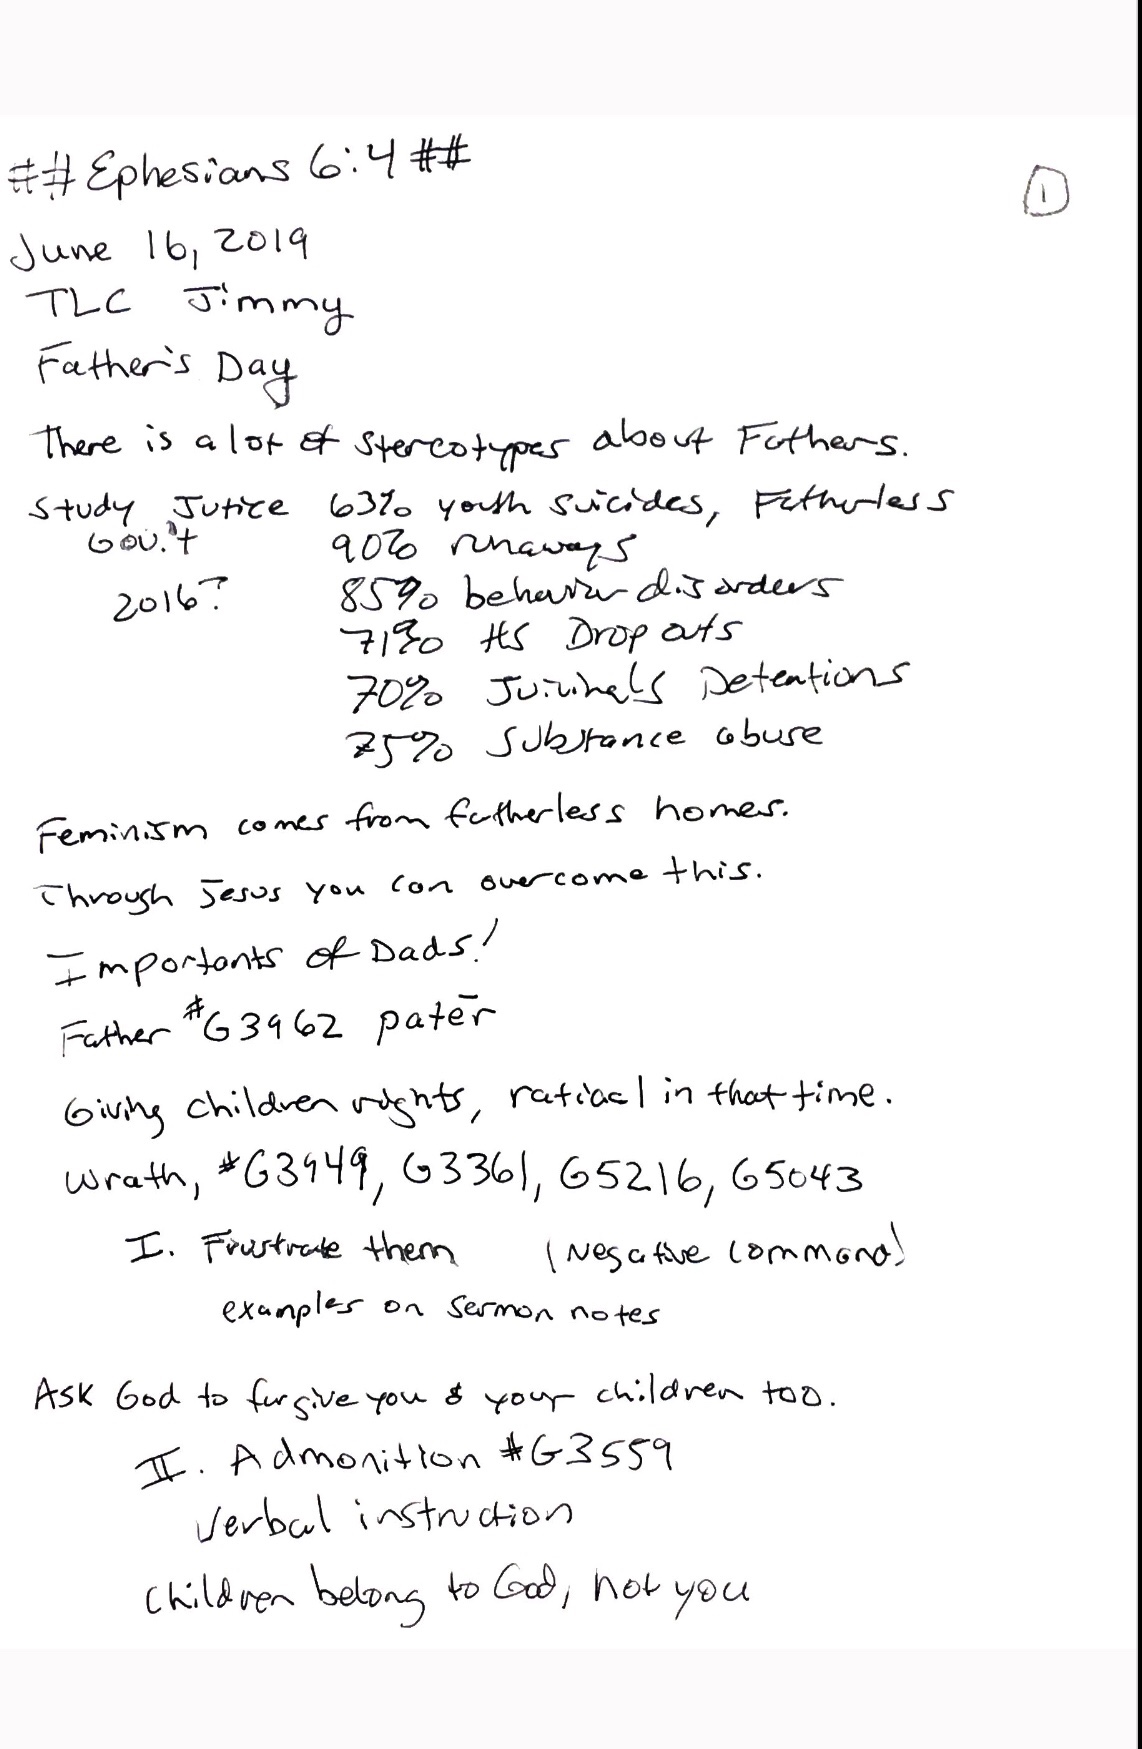 ## Ephesians 6:4 ##
1
June 16, 2019
TLC Jimmy
Father's Day
There is a lot of stereotypes about Fathers.
Study Jutice 63% youth suicides, Fatherless
Gov.'t 90% runaways
2016? 85% behavior disorders
71% HS Drop outs
70% Juvinels Detentions
75% Substance abuse
Feminism comes from fatherless homes.
Through Jesus you can overcome this.
Importants of Dads!
Father #G3962 patēr
Giving children rights, ratiacl in that time.
Wrath, #G3949, G3361, G5216, G5043
I. Frustrate them (Negative Command)
examples on sermon notes
Ask God to forgive you & your children too.
II. Admonition #G3559
Verbal instruction
Children belong to God, not you